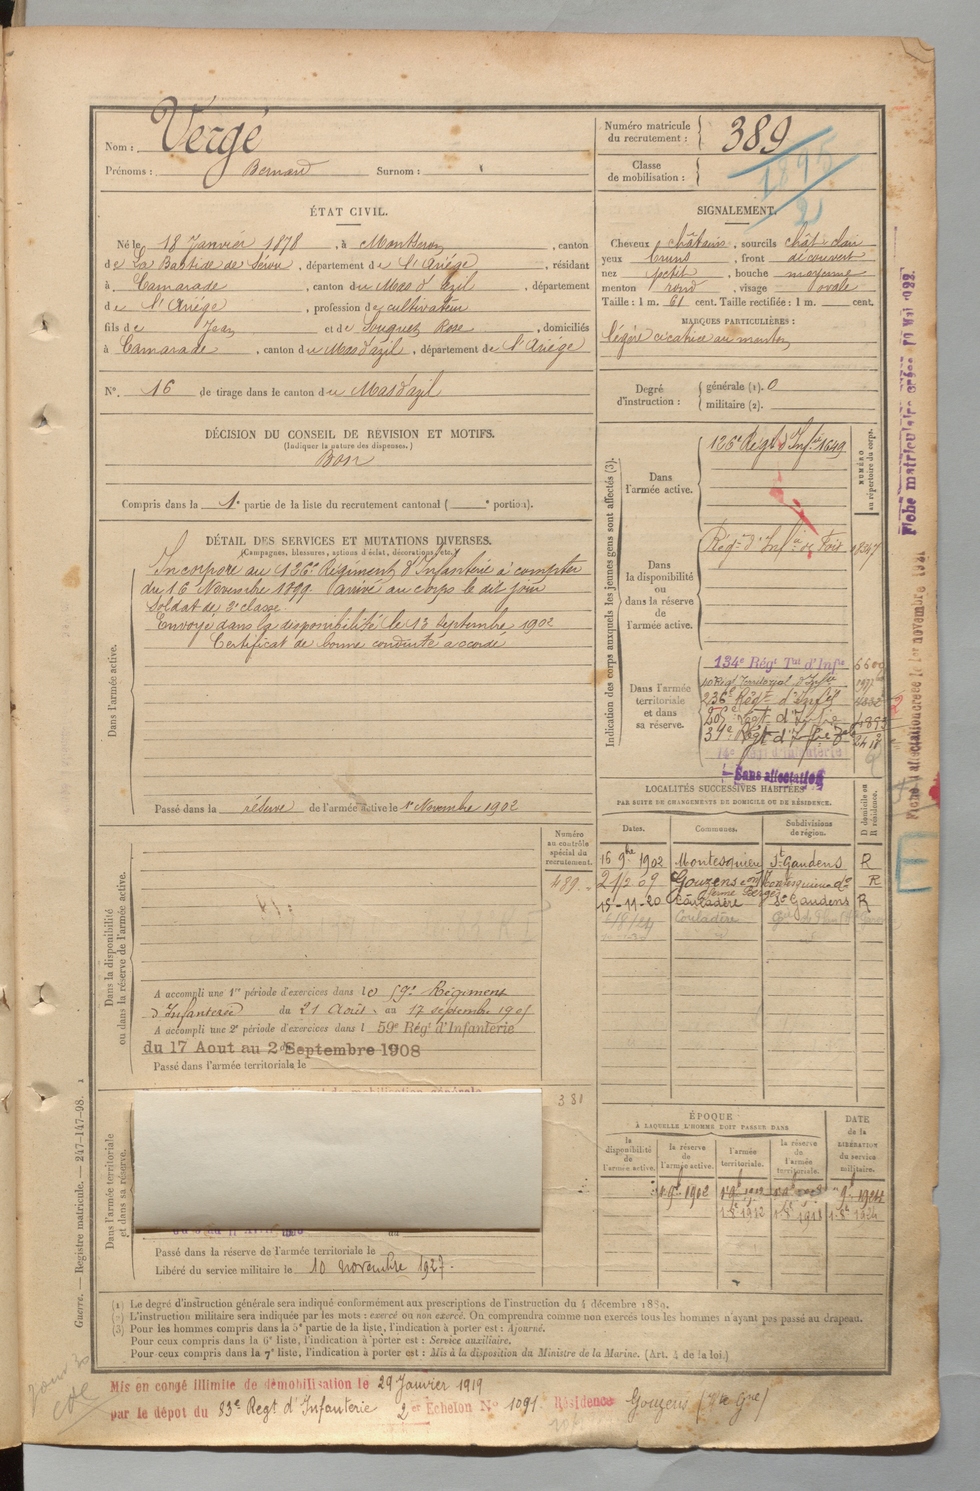 Nom : Vergé
Prénoms : Bernard Surnom :
Numéro matricule du recrutement : 389
Classe de mobilisation : 1895
ÉTAT CIVIL.
Né le 18 Janvier 1878, à Montseron, canton
de La Bastide de Sérou, département de l'Ariège, résidant
à Camarade, canton du Mas d'Azil, département
de l'Ariège, profession de cultivateur
fils de Jean et de Souquet Rose, domiciliés
à Camarade, canton du Mas d'azil, département de l'Ariège
N°. 16 de tirage dans le canton du Mas d'azil
SIGNALEMENT.
Cheveux châtains, sourcils chât. clair
yeux bruns, front découvert
nez petit, bouche moyenne
menton rond, visage ovale
Taille : 1 m. 61 cent. Taille rectifiée : 1 m. cent.
MARQUES PARTICULIÈRES :
légère cicatrice au menton
Degré d'instruction : générale (1). 0
militaire (2).
DÉCISION DU CONSEIL DE RÉVISION ET MOTIFS.
(Indiquer la nature des dispenses.)
Bon
Compris dans la 1e partie de la liste du recrutement cantonal ( e portion).
DÉTAIL DES SERVICES ET MUTATIONS DIVERSES.
(Campagnes, blessures, actions d'éclat, décorations, etc.)
Dans l'armée active.
Incorporé au 126e Régiment d'Infanterie à compter
du 16 Novembre 1899. Arrivé au corps le dit jour
Soldat de 2e classe.
Envoyé dans la disponibilité le 13 Septembre 1902
Certificat de bonne conduite accordé
Passé dans la réserve de l'armée active le 1er Novembre 1902
Indication des corps auxquels les jeunes gens sont affectés (3).
NUMÉRO au répertoire du corps.
Dans l'armée active.
126e Régt d'Infie 1649
Dans la disponibilité ou dans la réserve de l'armée active.
Régt d'Infie de Foix
Dans l'armée territoriale et dans sa réserve.
134e Régt Tal d'Infie
236e Régt d'Infie
Sans affectation
LOCALITÉS SUCCESSIVES HABITÉES
PAR SUITE DE CHANGEMENTS DE DOMICILE OU DE RÉSIDENCE.
Dates. Communes. Subdivisions de région. D domicile ou R résidence.
16 9bre 1902 Montesquieu St Gaudens R
21/2 09 Gouzens R
15-11-20 Couladère St Gaudens R
Couladère
Dans la disponibilité ou dans la réserve de l'armée active.
Numéro au contrôle spécial du recrutement.
489
A accompli une 1re période d'exercices dans le 59e Régiment
d'Infanterie du 21 Août au 17 septembre 1905
A accompli une 2e période d'exercices dans l 59e Régt d'Infanterie
du 17 Aout au 2 Septembre 1908
Passé dans l'armée territoriale le
Dans l'armée territoriale et dans sa réserve.
381
Passé dans la réserve de l'armée territoriale le
Libéré du service militaire le 10 novembre 1927.
ÉPOQUE
À LAQUELLE L'HOMME DOIT PASSER DANS
la disponibilité de l'armée active.
la réserve de l'armée active.
l'armée territoriale.
la réserve de l'armée territoriale.
DATE de la LIBÉRATION du service militaire.
(1) Le degré d'instruction générale sera indiqué conformément aux prescriptions de l'instruction du 4 décembre 1889.
(2) L'instruction militaire sera indiquée par les mots : exercé ou non exercé. On comprendra comme non exercés tous les hommes n'ayant pas passé au drapeau.
(3) Pour les hommes compris dans la 5e partie de la liste, l'indication à porter est : Ajourné.
Pour ceux compris dans la 6e liste, l'indication à porter est : Service auxiliaire.
Pour ceux compris dans la 7e liste, l'indication à porter est : Mis à la disposition du Ministre de la Marine. (Art. 4 de la loi.)
Mis en congé illimité de démobilisation le 29 Janvier 1919
par le dépot du 83e Regt d'Infanterie 2er Echelon N° 1091 Résidence Gouzens (Hte Gne)
Guerre. — Registre matricule. — 247-147-98.
Fiche matriculaire créée
E